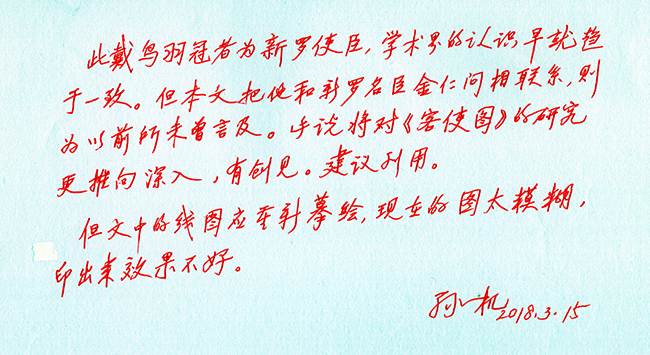 此戴鸟羽冠者为新罗使臣，学术界的认识早就趋
于一致。但本文把他和新罗名臣金仁问相联系，则
为以前所未曾言及。此说将对《客使图》的研究
更推向深入，有创见。建议刊用。
但文中的线图应重新摹绘，现在的图太模糊，
印出来效果不好。
孙机 2018.3.15